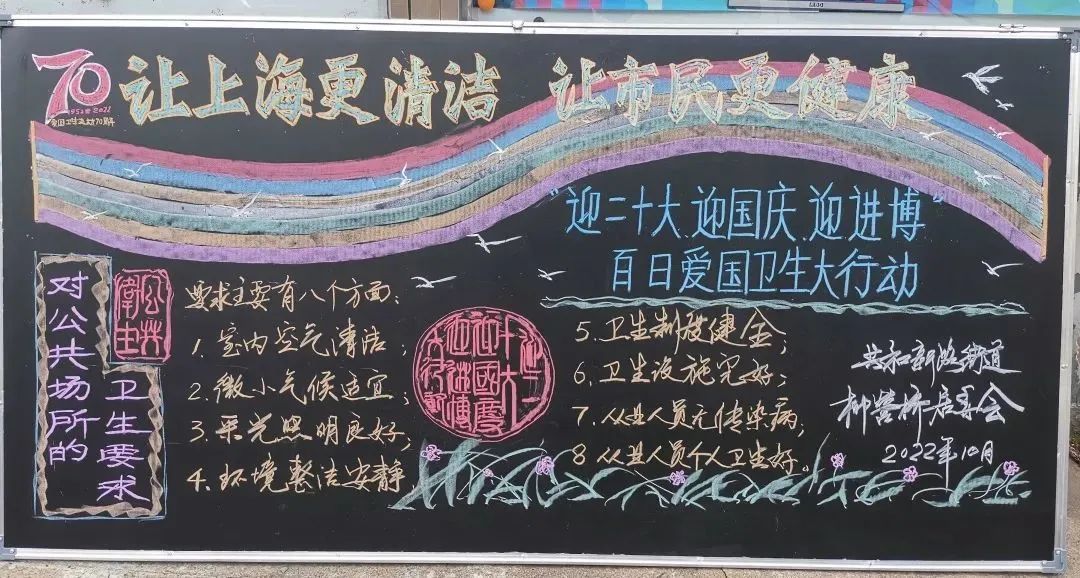 70
1952至2022
爱国卫生运动70周年
让上海更清洁 让市民更健康
"迎二十大 迎国庆 迎进博"
百日爱国卫生大行动
对公共场所的
卫生要求
公共
衛生
要求主要有八个方面：
1. 室内空气清洁；
2. 微小气候适宜；
3. 采光照明良好；
4. 环境整洁安静
迎二
十大
迎國慶
迎進博
大行動
5. 卫生制度健全；
6. 卫生设施完好；
7. 从业人员无传染病；
8 从业人员个人卫生好。
共和新路街道
柳营桥居委会
2022年10月